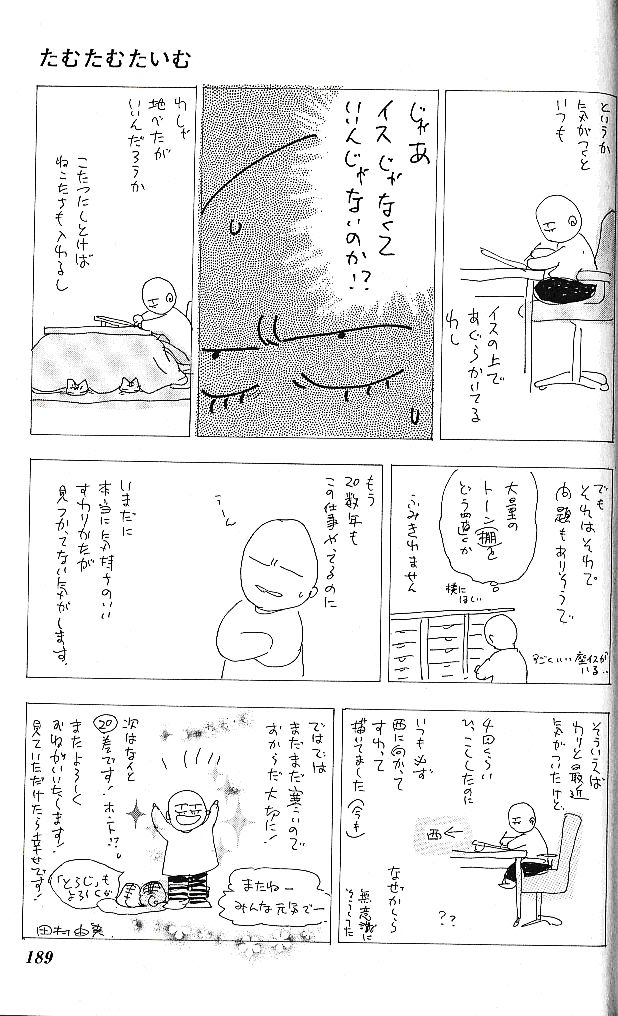 たむたむたいむ
というか
気がつくと
いつも
イスの上で
あぐらかいてる
わし
じゃあ
イスじゃなくて
いいんじゃないのか!?
わしゃ
地べたが
いいんだろうか
こたつにしとけば
ねこたちも入れるし
でも
それはそれで
問題もありそうで
大量の
トーン棚を
どう置くか
ふみきれません
横に
ほしい
すごくいい座イスが
いる…
もう
20数年も
この仕事やってるのに
うーん
いまだに
本当に気持ちのいい
すわりかたが
見つかってない気がします。
そういえば
わりと最近
気がついたけど、
4回くらい
ひっこしたのに
いつも必ず
西に向かって
すわって
描いてました(今も)
西←
なぜかしら
無意識に
??
ではでは
まだまだ寒いので
おからだ大切に!
次はなんと
⑳巻です!ホント!?
またよろしく
おねがいいたします!
見ていただけたら幸せです!
またねー
みんな元気でー
「とらじ」も
よろしくね
田村由美
189